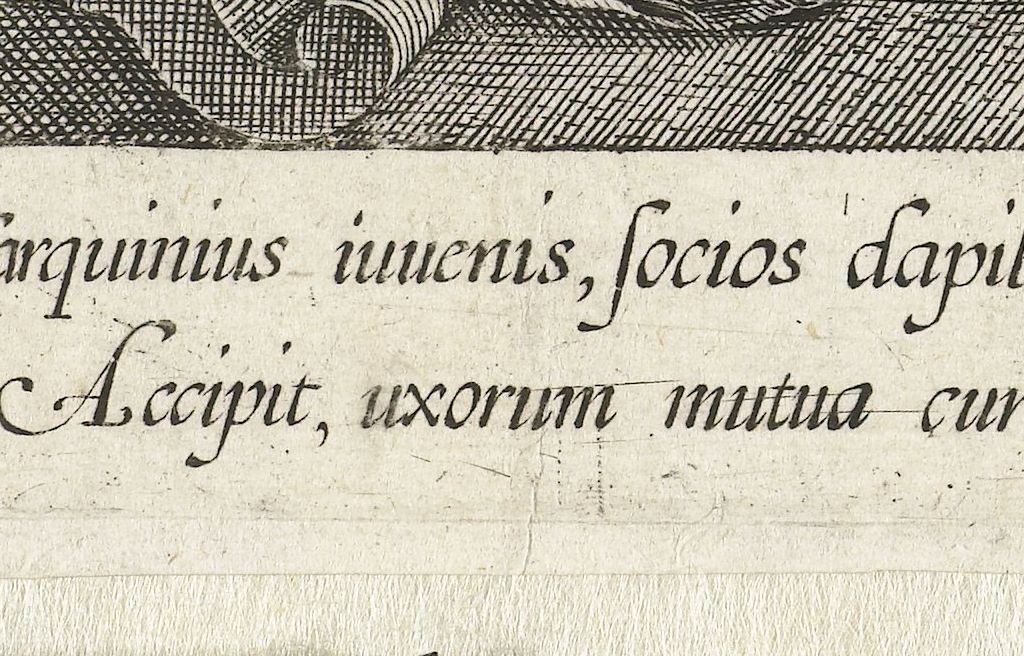 arquinius iuuenis, ſocios dapi
Accipit, uxorum mutua cur